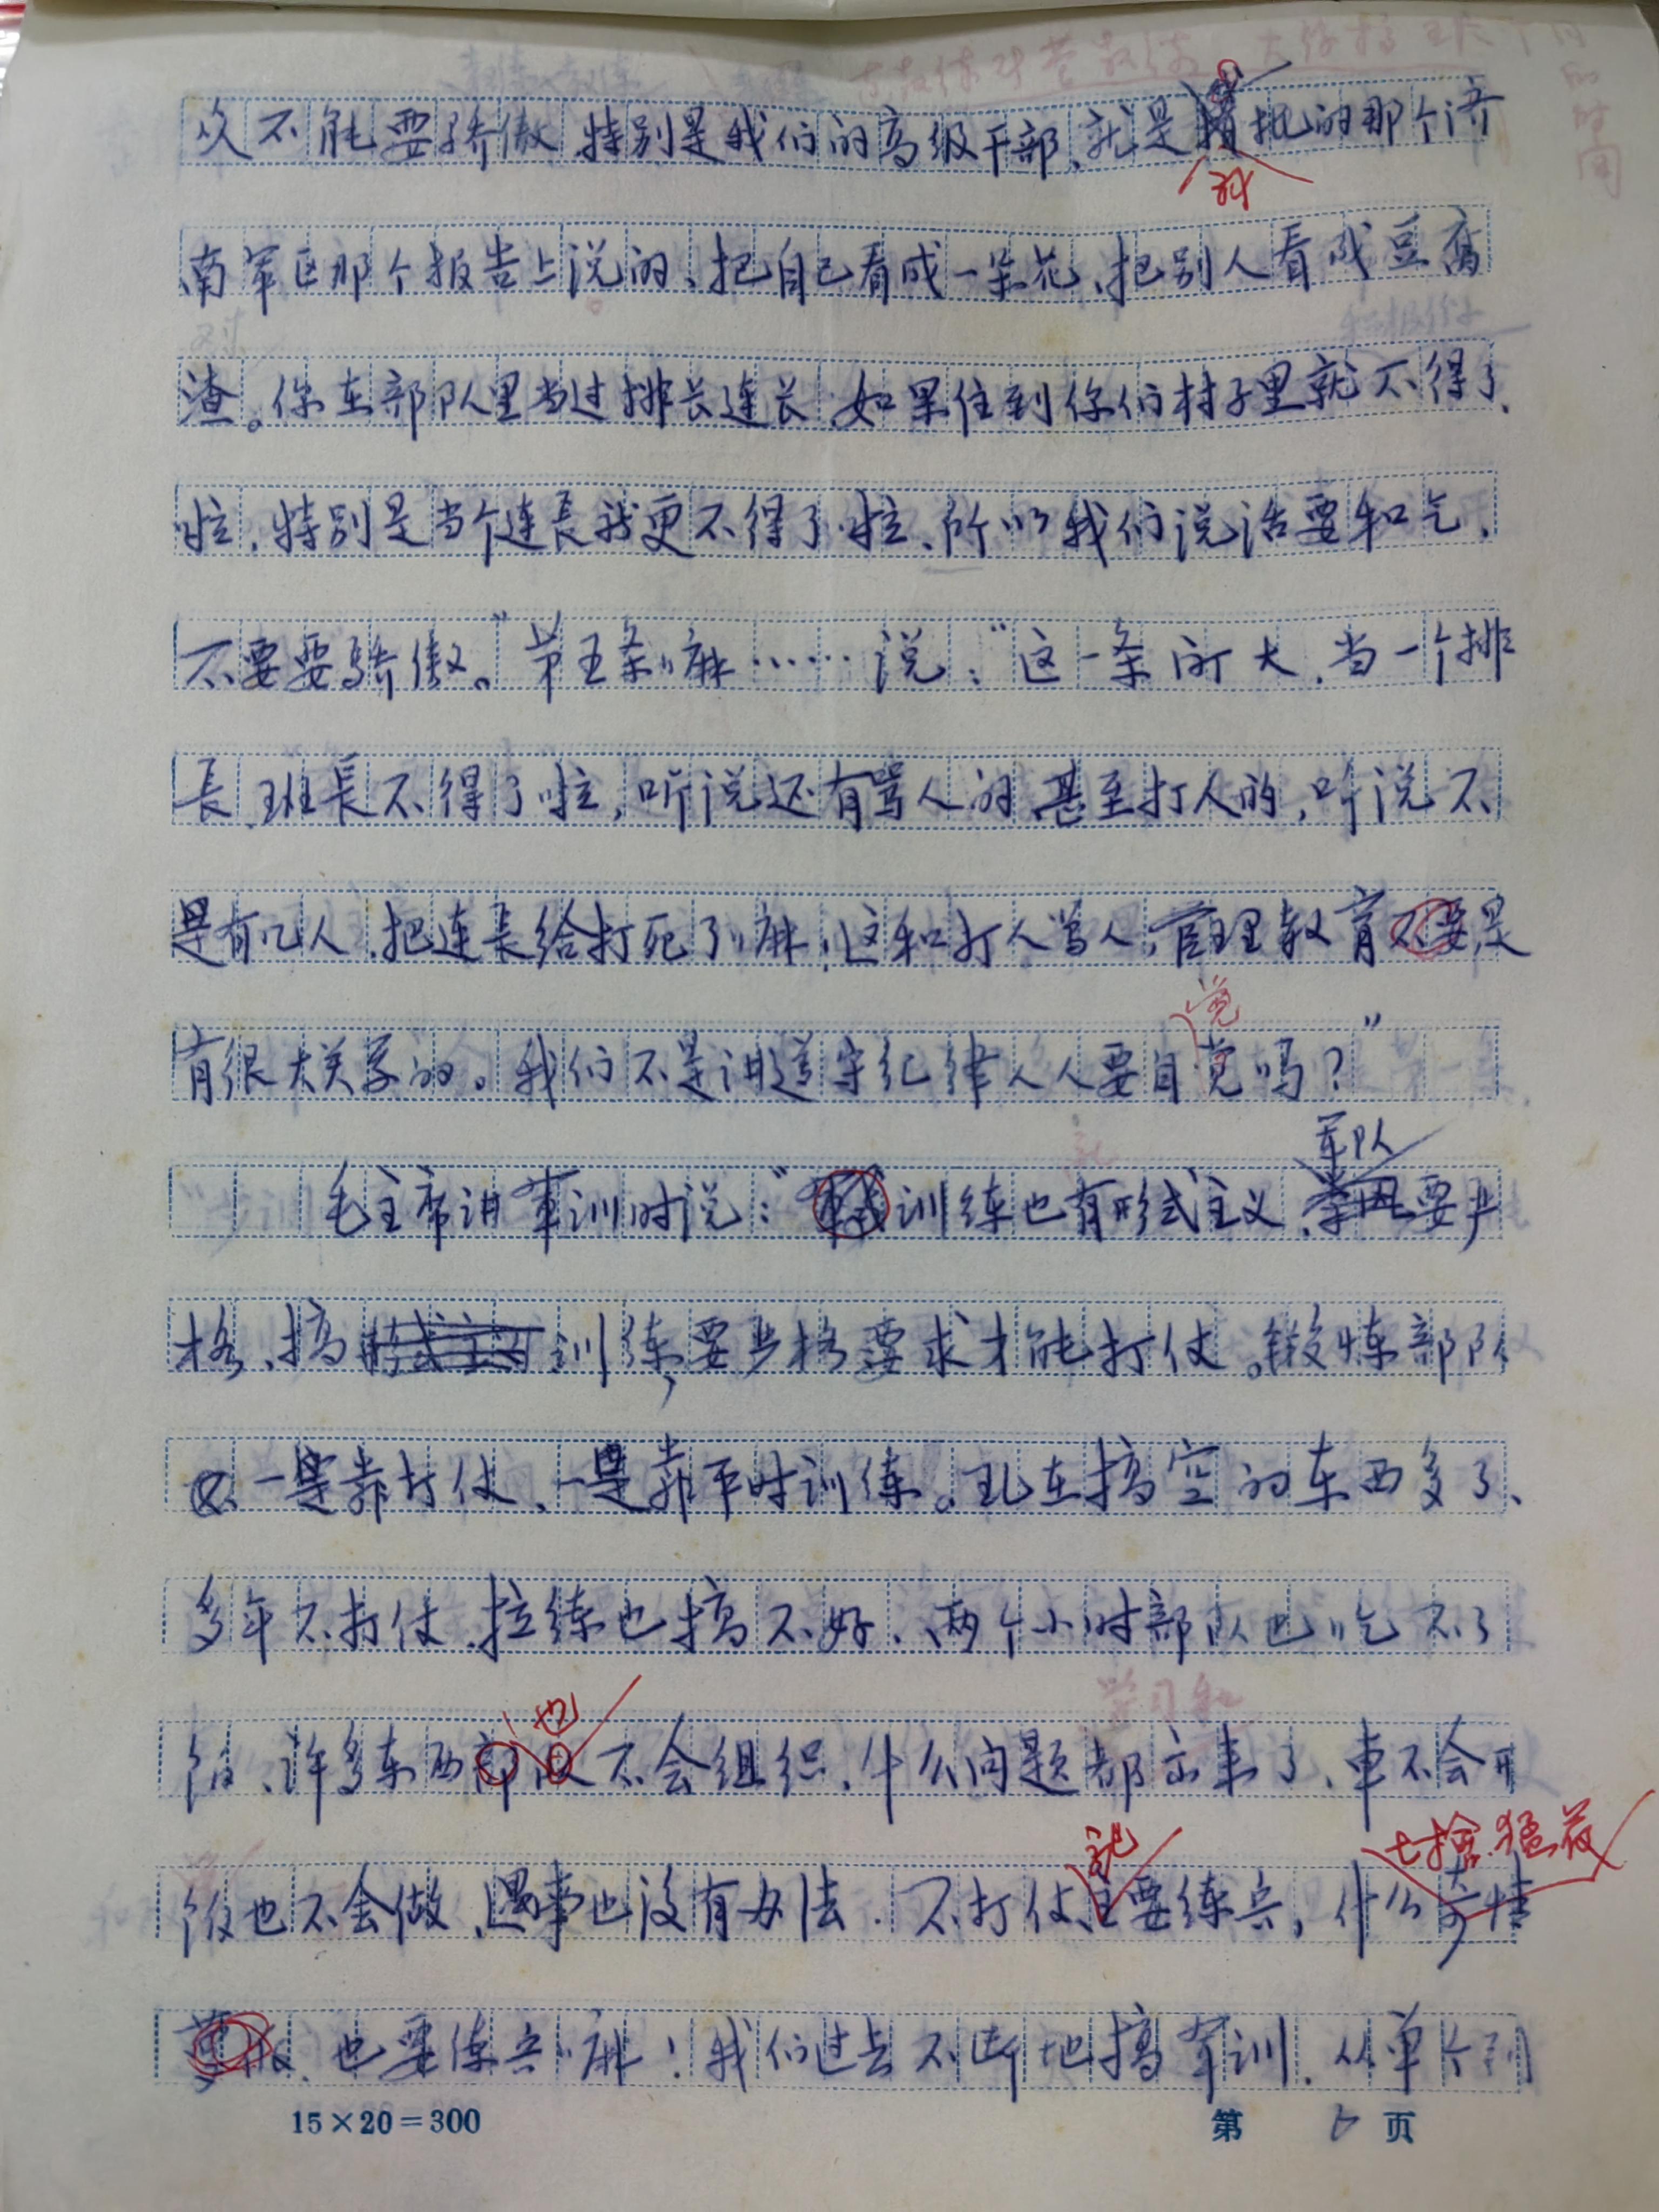 众不能要骄傲.特别是我们的高级干部、就是对批的那个济
南军区那个报告上说的、把自己看成一朵花、把别人看成豆腐
渣。你在部队里当过排长连长.如果住到你们村子里就不得了
啦.特别是当个连長就更不得了啦、所以我们说话要和气.
不要要骄傲。”第五条嘛……说:“这一条所大.当一个排
長.班長不得了啦,听说还有骂人的.甚至打人的,听说不
是有几人.把连長给打死了嘛,这和打人骂人,管理教育不要是
有很大关系的。我们不是讲遵守纪律人人要自觉吗?”
毛主席讲军训时说:“训练也有形式主义.军队要严
格、搞训练,要严格要求才能打仗。锻炼部队
一是靠打仗、一是靠平时训练。现在搞空的东西多了、
多年不打仗.拉练也搞不好、两个小时部队也吃不了
饭、许多东西也不会组织.什么问题都出来了、車不会开
饭也不会做、遇事也没有办法.不打仗、就要练兵,什么七擒猛荻
也要练兵嘛!我们过去不断地搞军训.从单个到
15×20=300
第 6 页